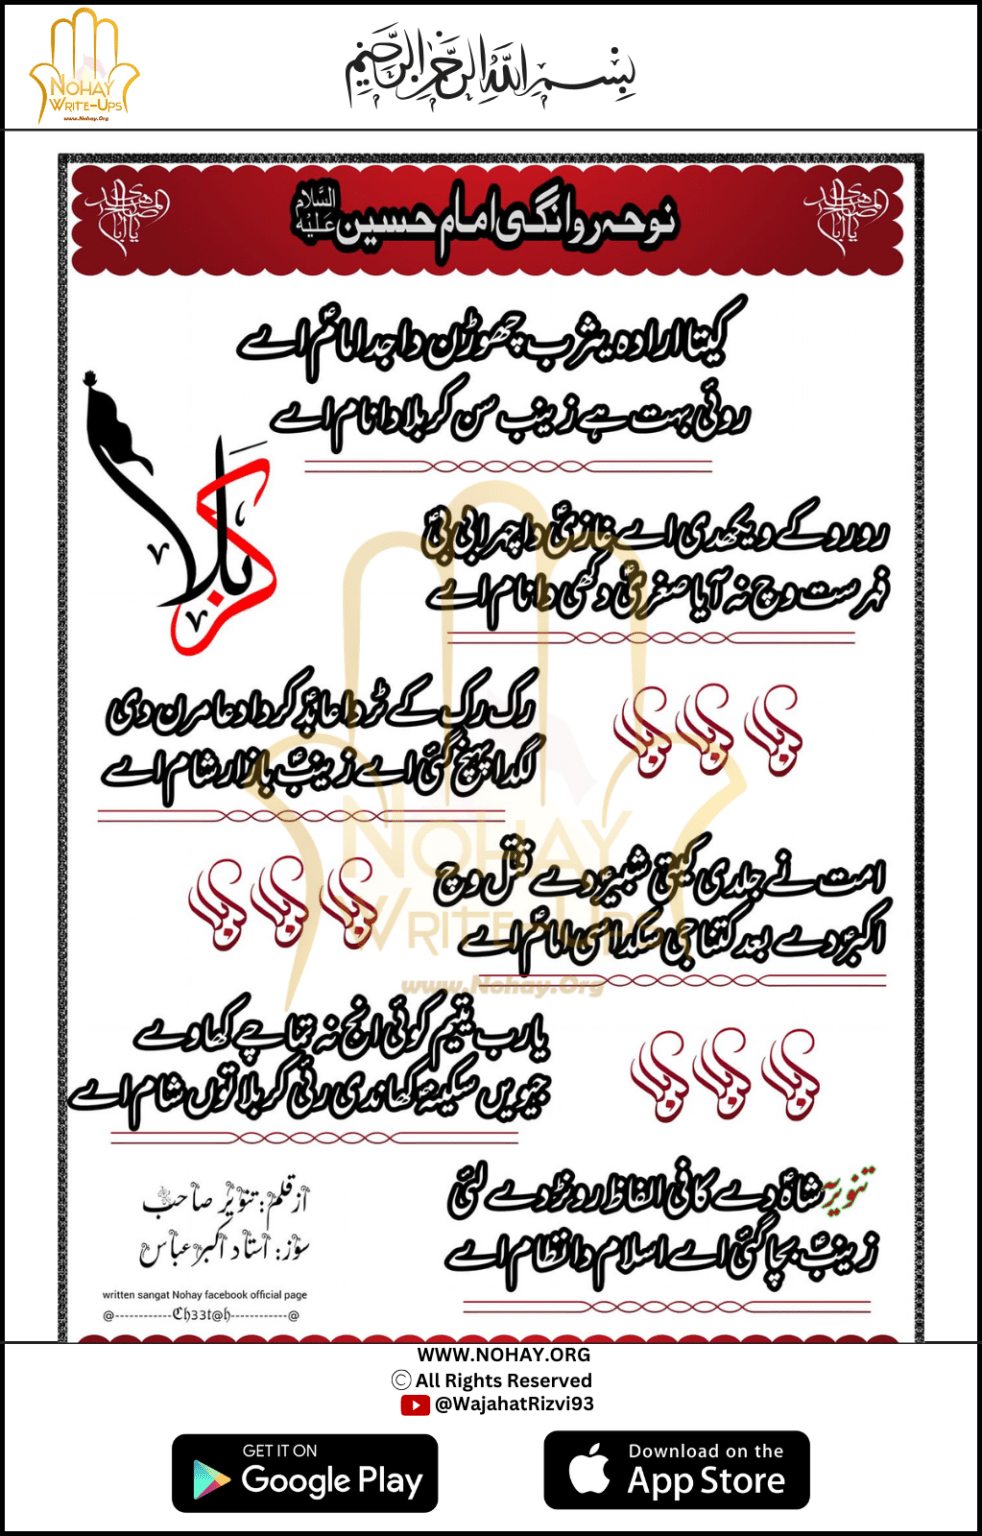 NOHAY
WRITE-UPS
www.Nohay.Org
بِسْمِ اللهِ الرَّحْمٰنِ الرَّحِيْمِ
نوحہ روانگی امام حسین عَلَيْهِ السَّلَام
کیتا ارادہ یثرب چھوڑن دا جد امامؑ اے
روئی بہت ہے زینبؑ سن کربلا دا نام اے
کربلا
رو رو کے ویکھدی اے غازیؑ دا چہرا بی بیؑ
فہرست وچ نہ آیا صغریٰؑ دکھی دا نام اے
رک رک کے ٹردا عابدؑ کردا دعا مرن دی
لگدا پہنچ گئی اے زینبؑ بازار شام اے
امت نے جلدی کیتی شبیرؑ دے قتل وچ
اکبرؑ دے بعد کتنا جی سکدا سی امامؑ اے
NOHAY
WRITE-UPS
www.Nohay.Org
یا رب یتیم کوئی انج نہ تماچے کھاوے
جیویں سکینہؑ کھاندی رئی کربلا توں شام اے
تنویرؔ شاہؑ دے کافی الفاظ رونڑ دے لئی
زینبؑ بچا گئی اے اسلام دا نظام اے
از قلم: تنویر صاحب
سوز: استاد اکبر عباس
written sangat Nohay facebook official page
@------------Ch33t@h------------@
WWW.NOHAY.ORG
© All Rights Reserved
@WajahatRizvi93
GET IT ON
Google Play
Download on the
App Store